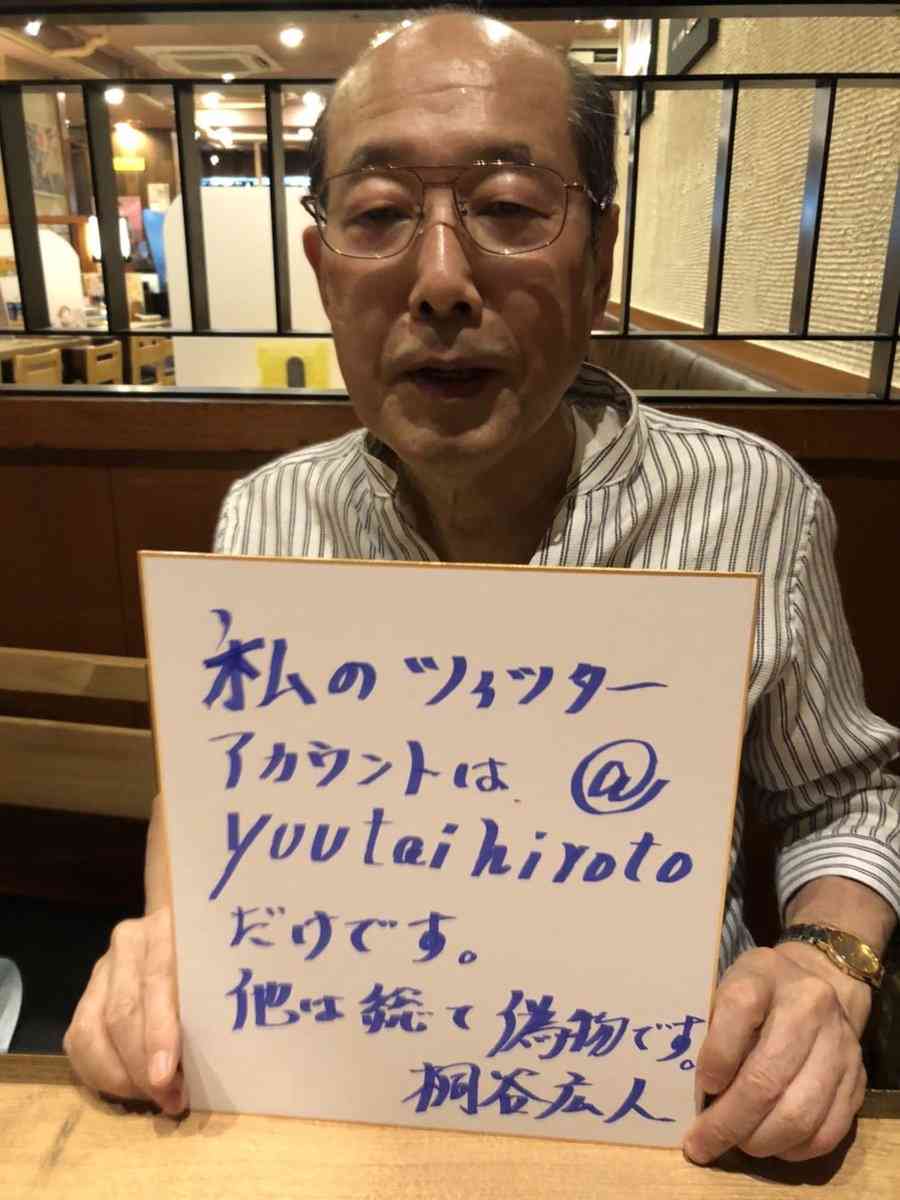 私のツイッター
アカウントは @
yuutaihiroto
だけです。
他は総て偽物です。
桐谷広人